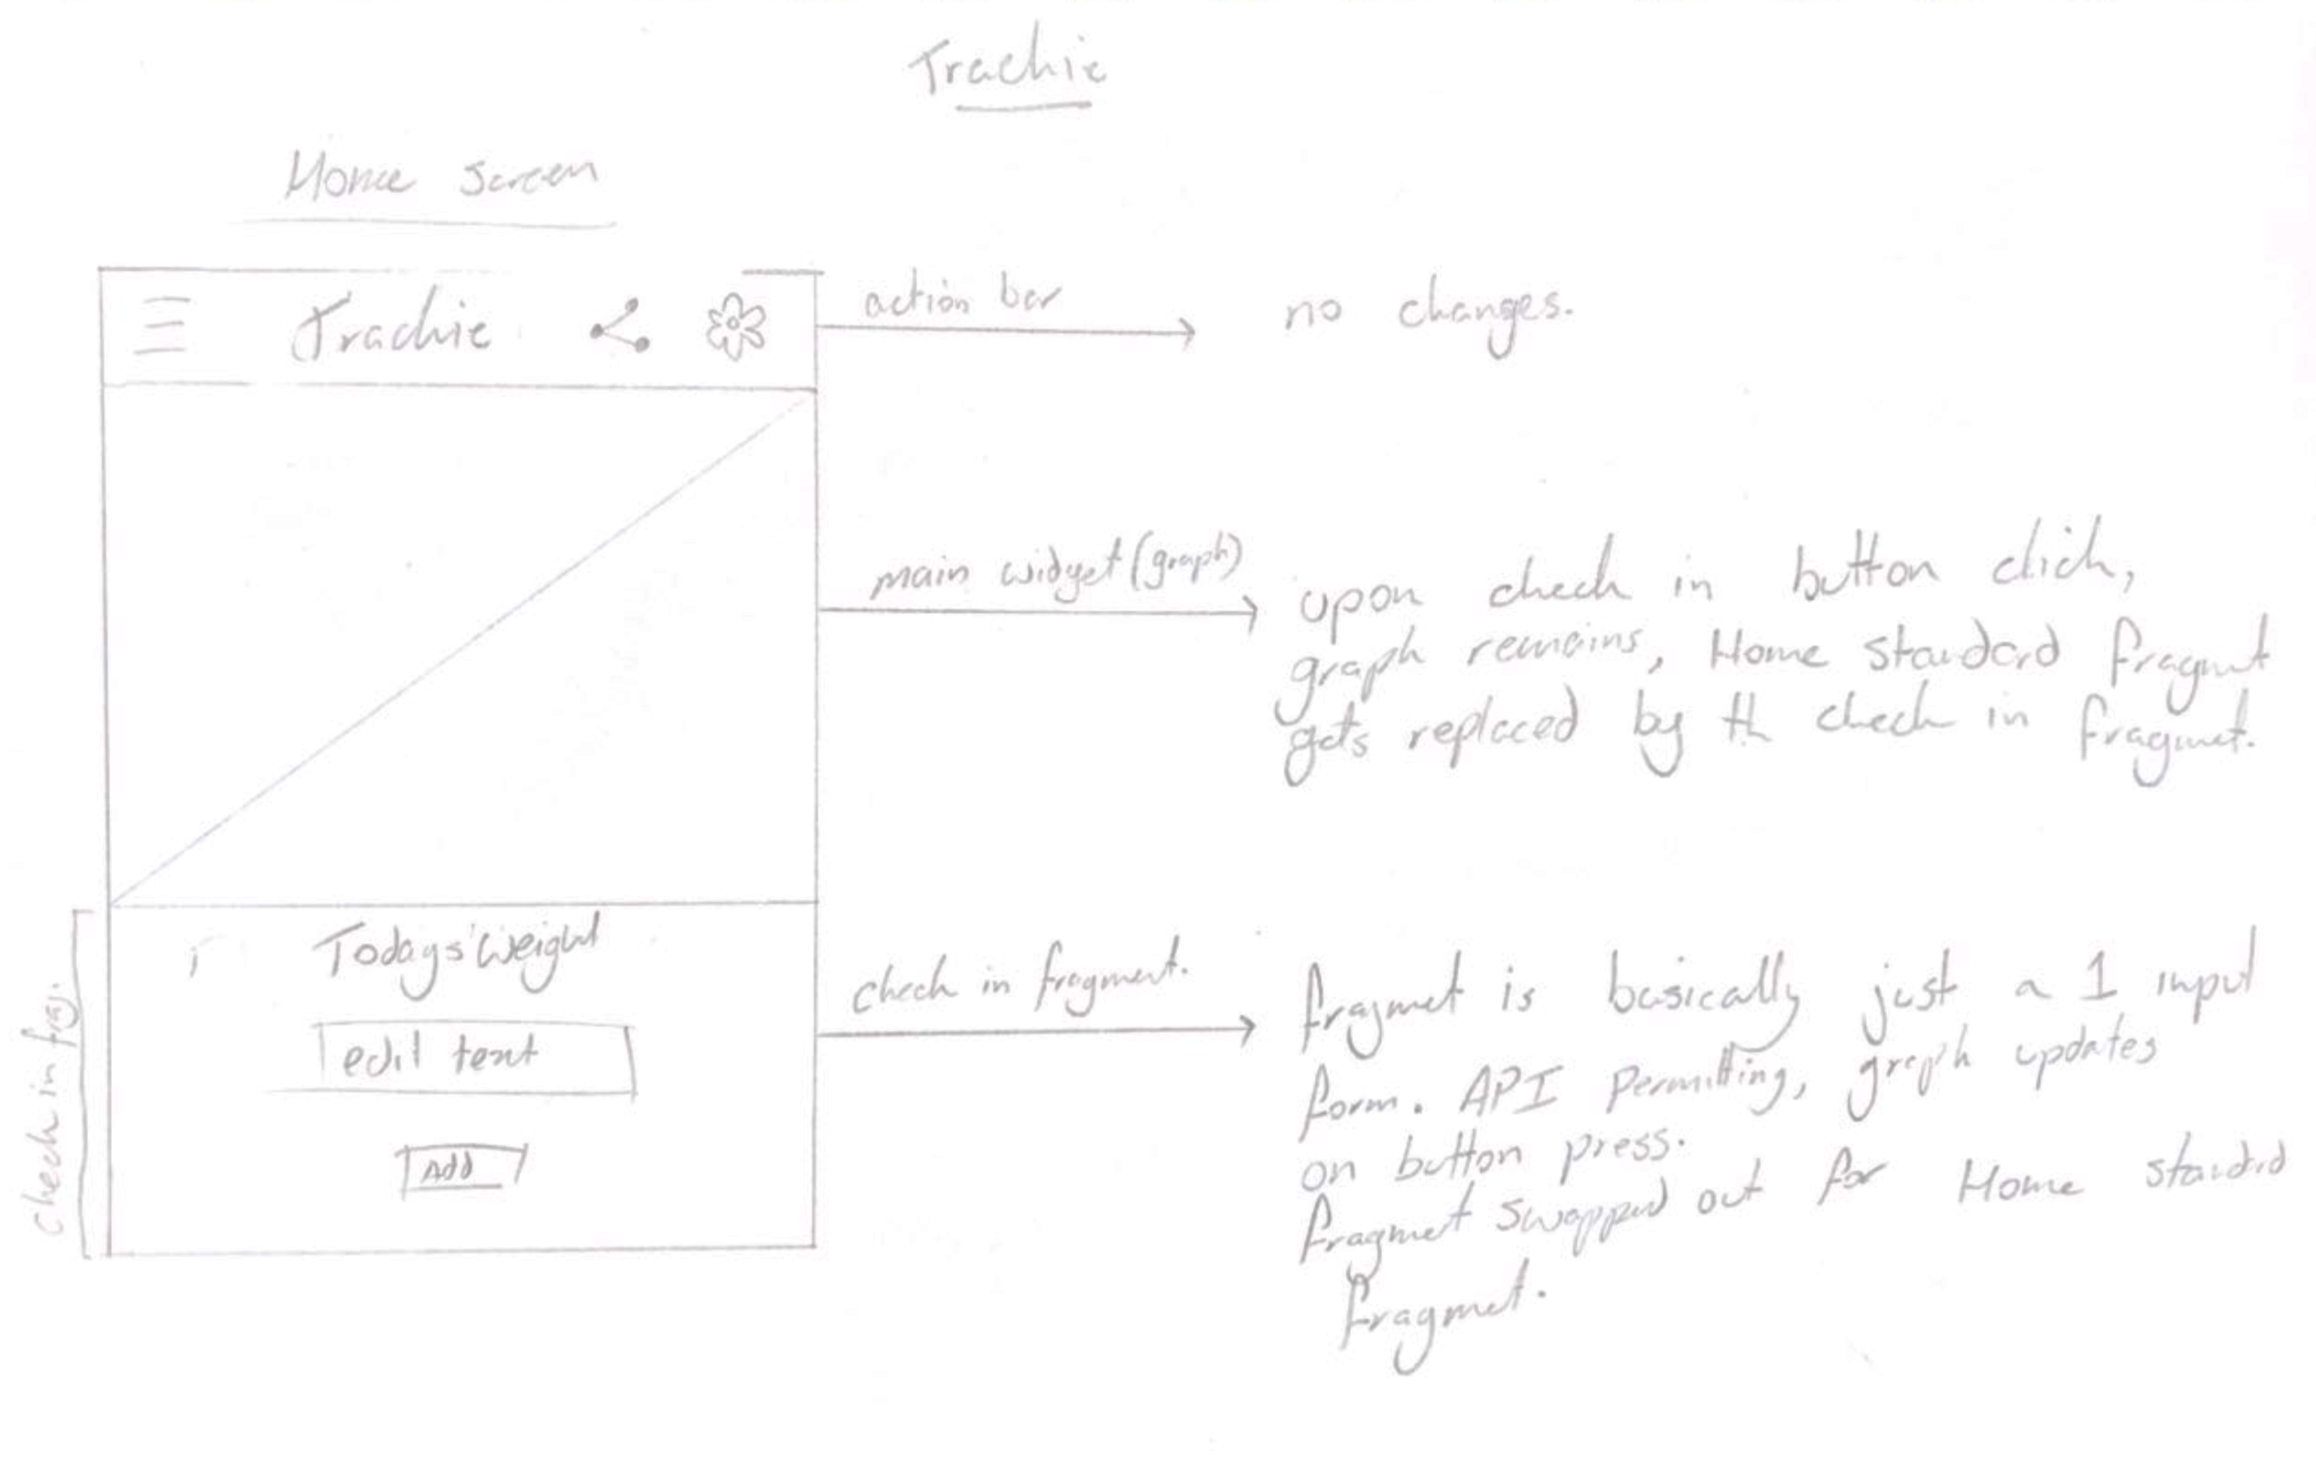 Trackie
Home Screen
Trackie
action bar
no changes.
main widget (graph)
upon check in button click,
graph remains, Home standard fragmnt
gets replaced by th check in fragmet.
Check in frag.
Todays Weight
edit text
ADD
check in fragment.
fragmet is basically just a 1 input
form. API permitting, graph updates
on button press.
fragmet swapped out for Home standrd
fragmet.